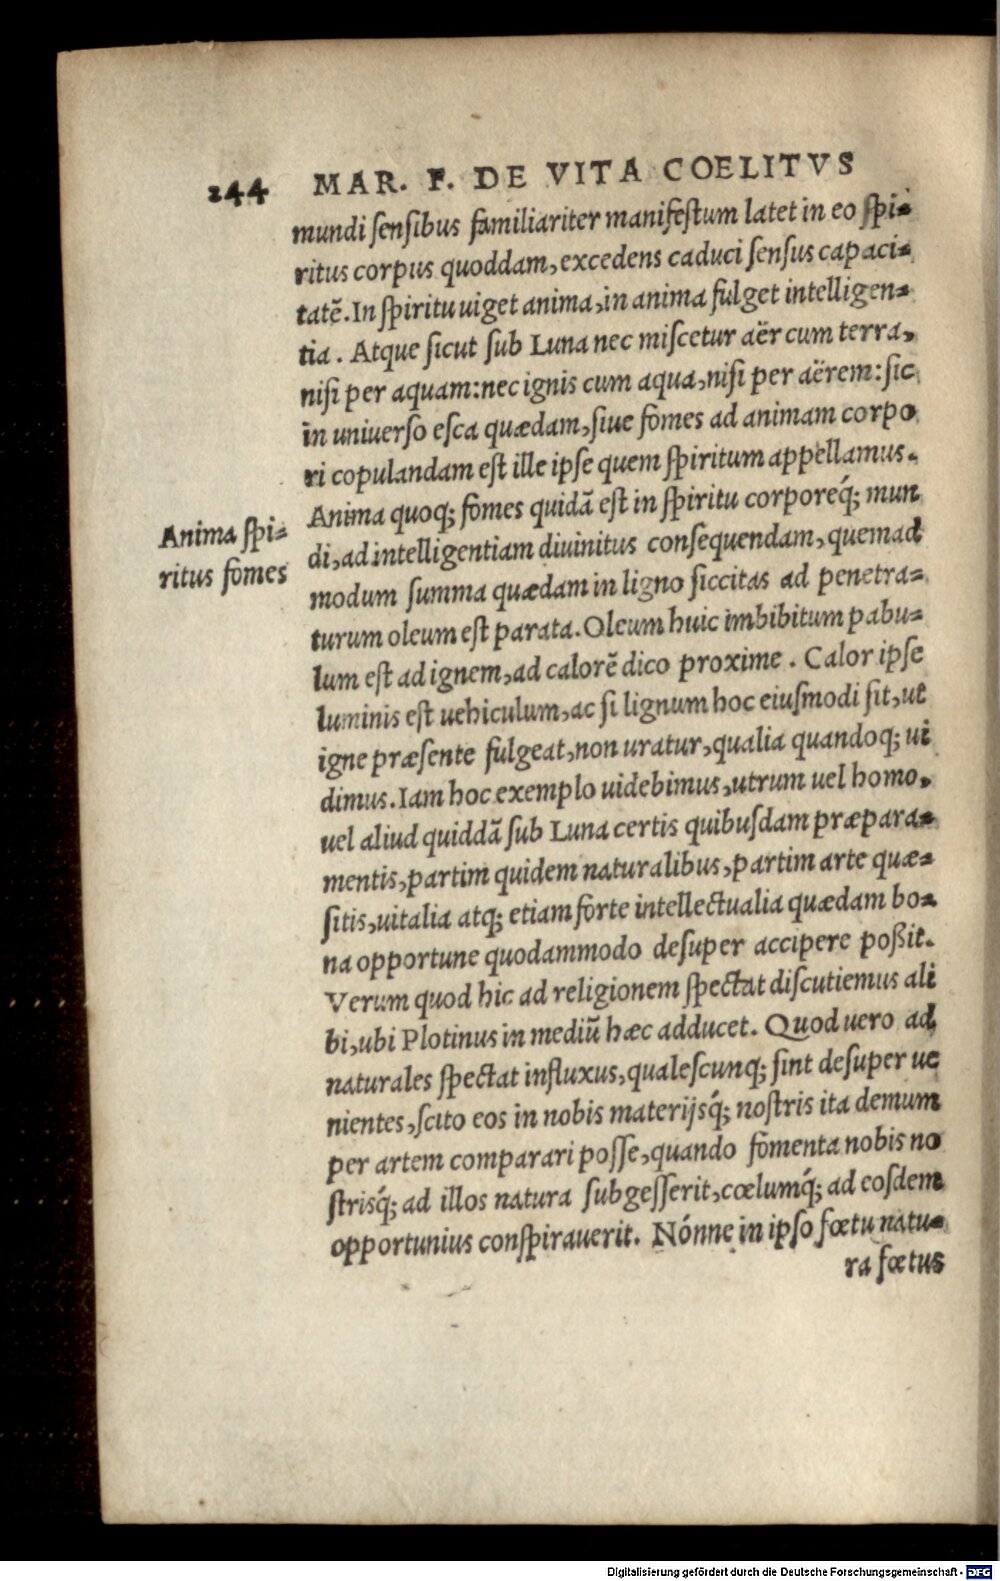 244 MAR. F. DE VITA COELITVS
mundi sensibus familiariter manifestum latet in eo spi-
ritus corpus quoddam, excedens caduci sensus capaci-
tatē. In spiritu uiget anima, in anima fulget intelligen-
tia. Atque sicut sub Luna nec miscetur aër cum terra,
nisi per aquam: nec ignis cum aqua, nisi per aërem: sic
in uniuerso esca quædam, siue fomes ad animam corpo
ri copulandam est ille ipse quem spiritum appellamus.
Anima quoq; fomes quidā est in spiritu corporeq́; mun
di, ad intelligentiam diuinitus consequendam, quemad
modum summa quædam in ligno siccitas ad penetra-
turum oleum est parata. Oleum huic imbibitum pabu-
lum est ad ignem, ad calorē dico proxime. Calor ipse
luminis est uehiculum, ac si lignum hoc eiusmodi sit, ut
igne præsente fulgeat, non uratur, qualia quandoq; ui
dimus. Iam hoc exemplo uidebimus, utrum uel homo,
uel aliud quiddā sub Luna certis quibusdam præpara-
mentis, partim quidem naturalibus, partim arte quæ-
sitis, uitalia atq; etiam forte intellectualia quædam bo-
na opportune quodammodo desuper accipere poßit.
Verum quod hic ad religionem spectat discutiemus ali
bi, ubi Plotinus in mediū hæc adducet. Quod uero ad
naturales spectat influxus, qualescunq; sint desuper ue
nientes, scito eos in nobis materijsq́; nostris ita demum
per artem comparari posse, quando fomenta nobis no
strisq́; ad illos natura subgesserit, cœlumq́; ad eosdem
opportunius conspirauerit. Nónne in ipso fœtu natu-
ra fœtus
Anima spi-
ritus fomes
Digitalisierung gefördert durch die Deutsche Forschungsgemeinschaft - DFG